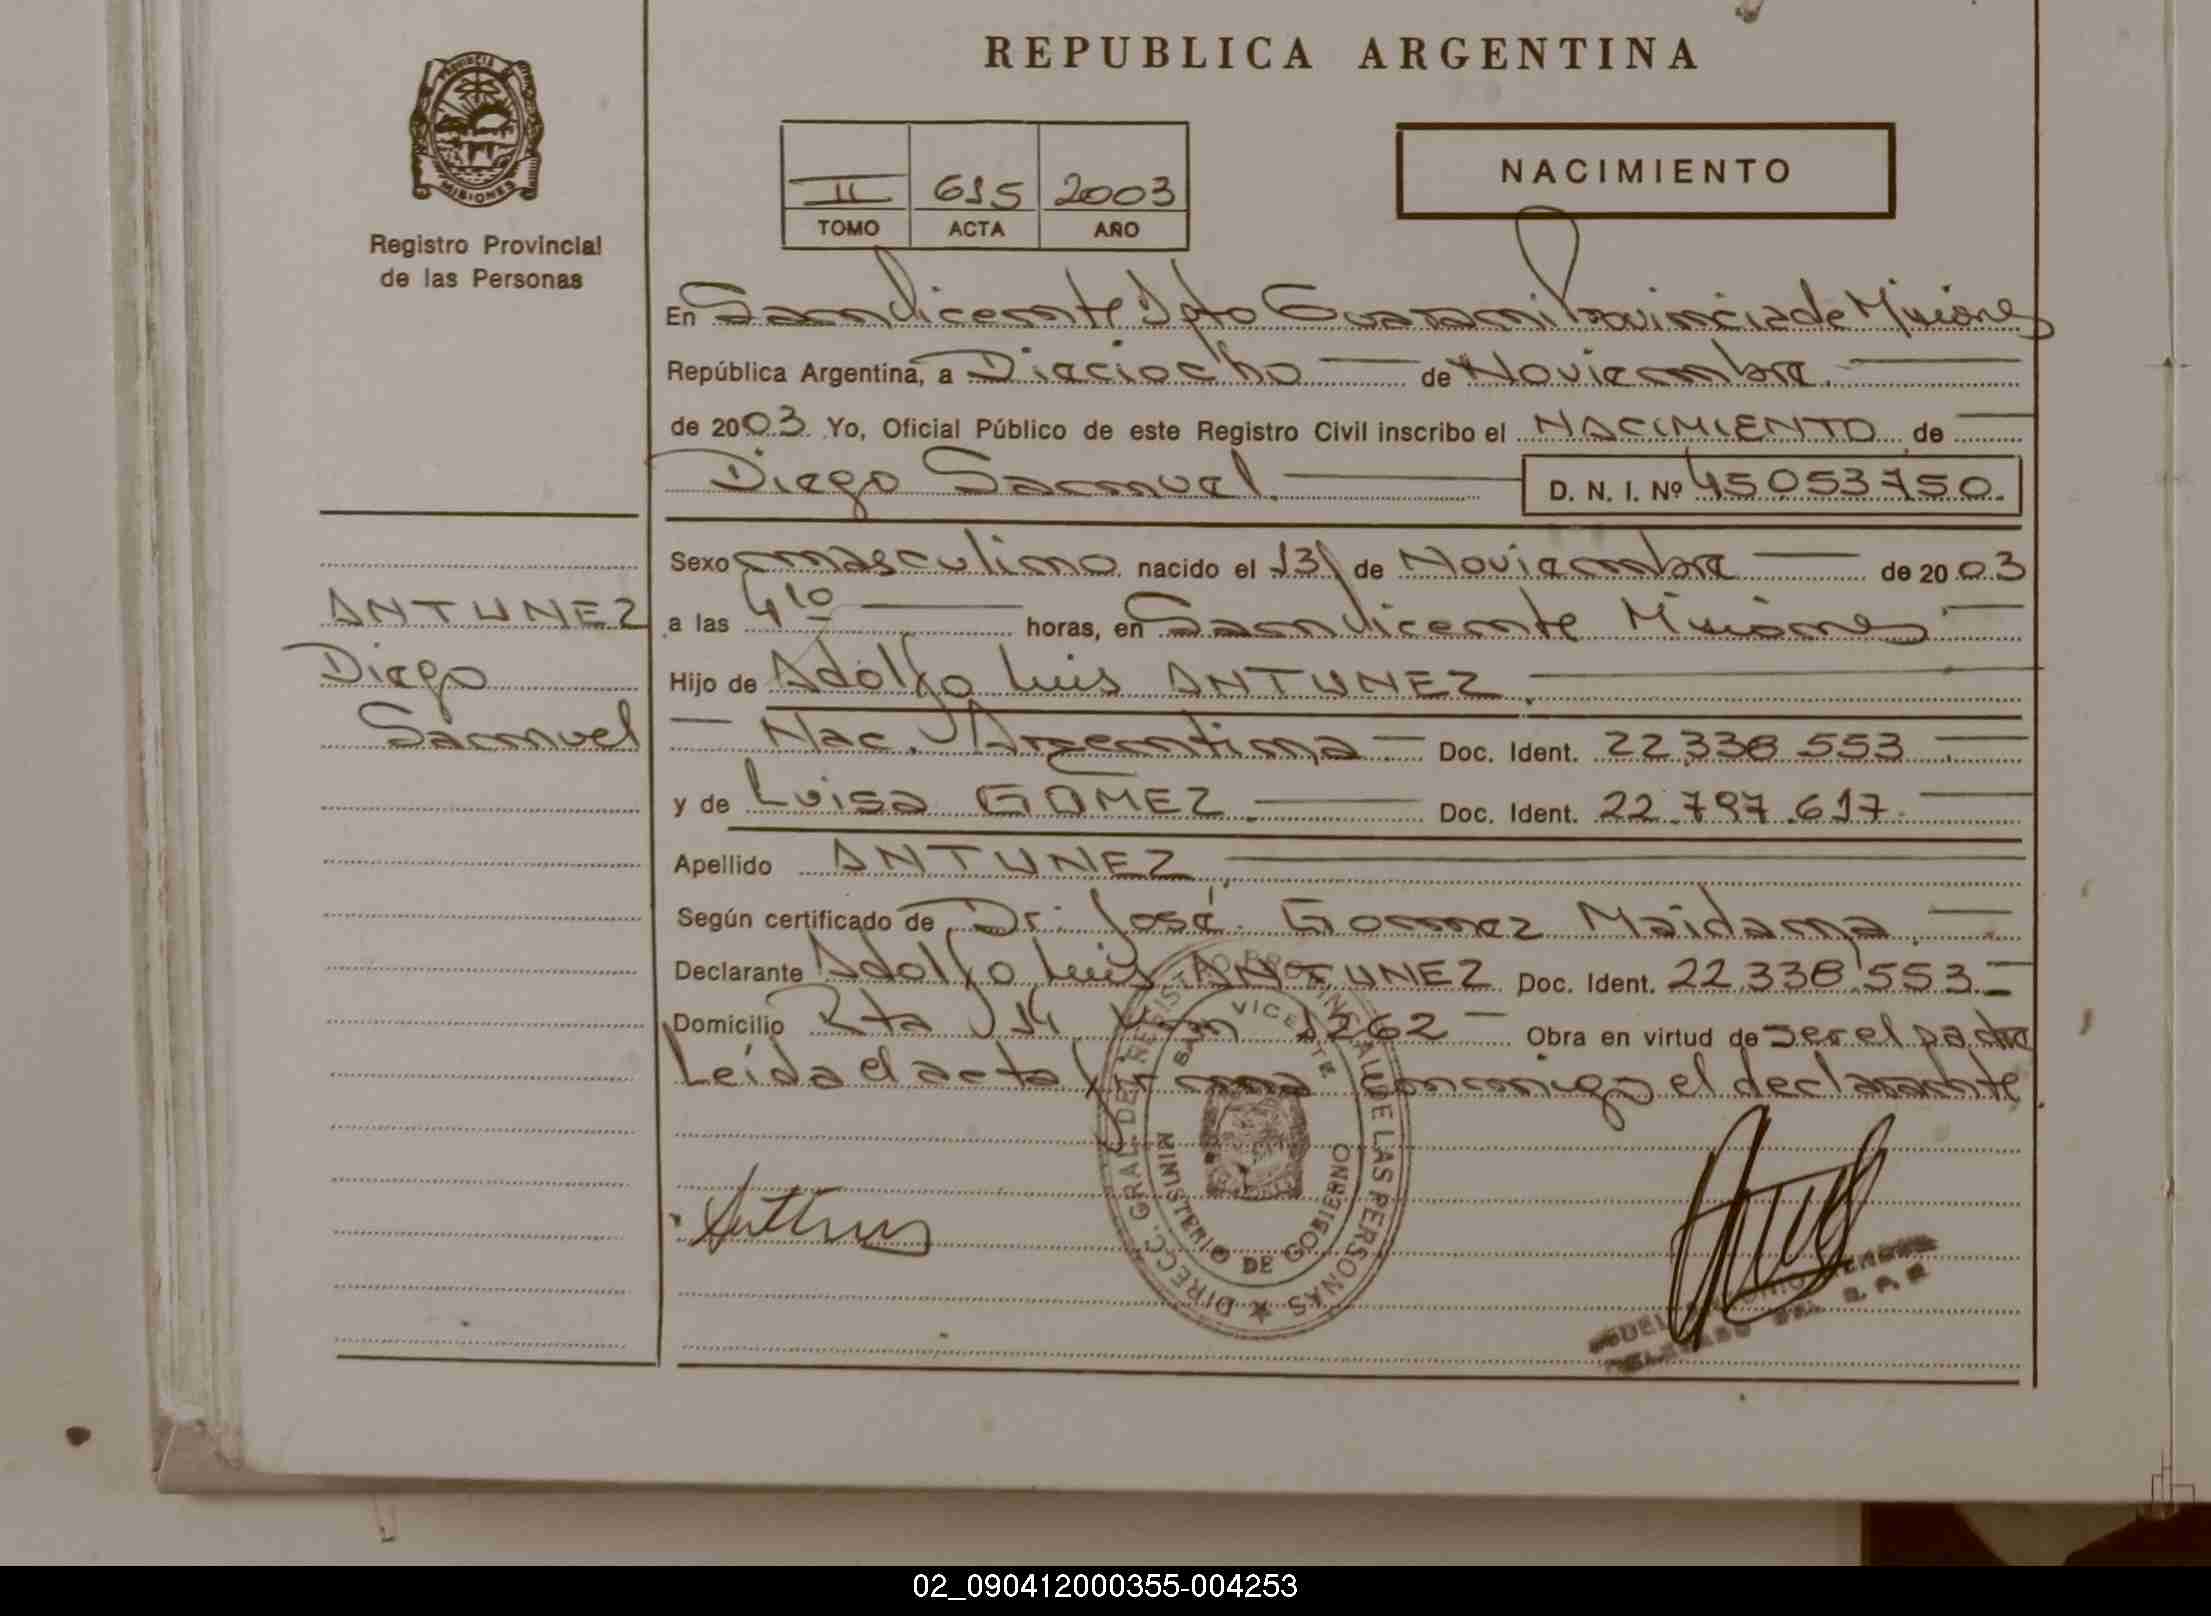 REPUBLICA ARGENTINA
PROVINCIA DE
MISIONES
Registro Provincial
de las Personas
II 615 2003
TOMO ACTA AÑO
NACIMIENTO
En San Vicente Dpto Guaraní Provincia de Misiones
República Argentina, a Dieciocho de Noviembre.
de 2003. Yo, Oficial Público de este Registro Civil inscribo el NACIMIENTO de
Diego Samuel. D. N. I. Nº 45053750.
Sexo masculino nacido el 13 de Noviembre de 2003
ANTUNEZ
Diego
Samuel
a las 4 10 horas, en San Vicente Misiones
Hijo de Adolfo Luis ANTUNEZ.
Nac. Argentina Doc. Ident. 22.338.553
y de Luisa GOMEZ. Doc. Ident. 22.797.617.
Apellido ANTUNEZ
Según certificado de Dr. José Gomez Maidana.
Declarante Adolfo Luis ANTUNEZ Doc. Ident. 22.338.553.
Domicilio Rta 14 Km 1262 Obra en virtud de ser el padre
Leída el acta firma conmigo el declarante
DIRECC. GRAL. DEL REGISTRO PROVINCIAL DE LAS PERSONAS
SAN VICENTE
MINISTERIO DE GOBIERNO
02_090412000355-004253